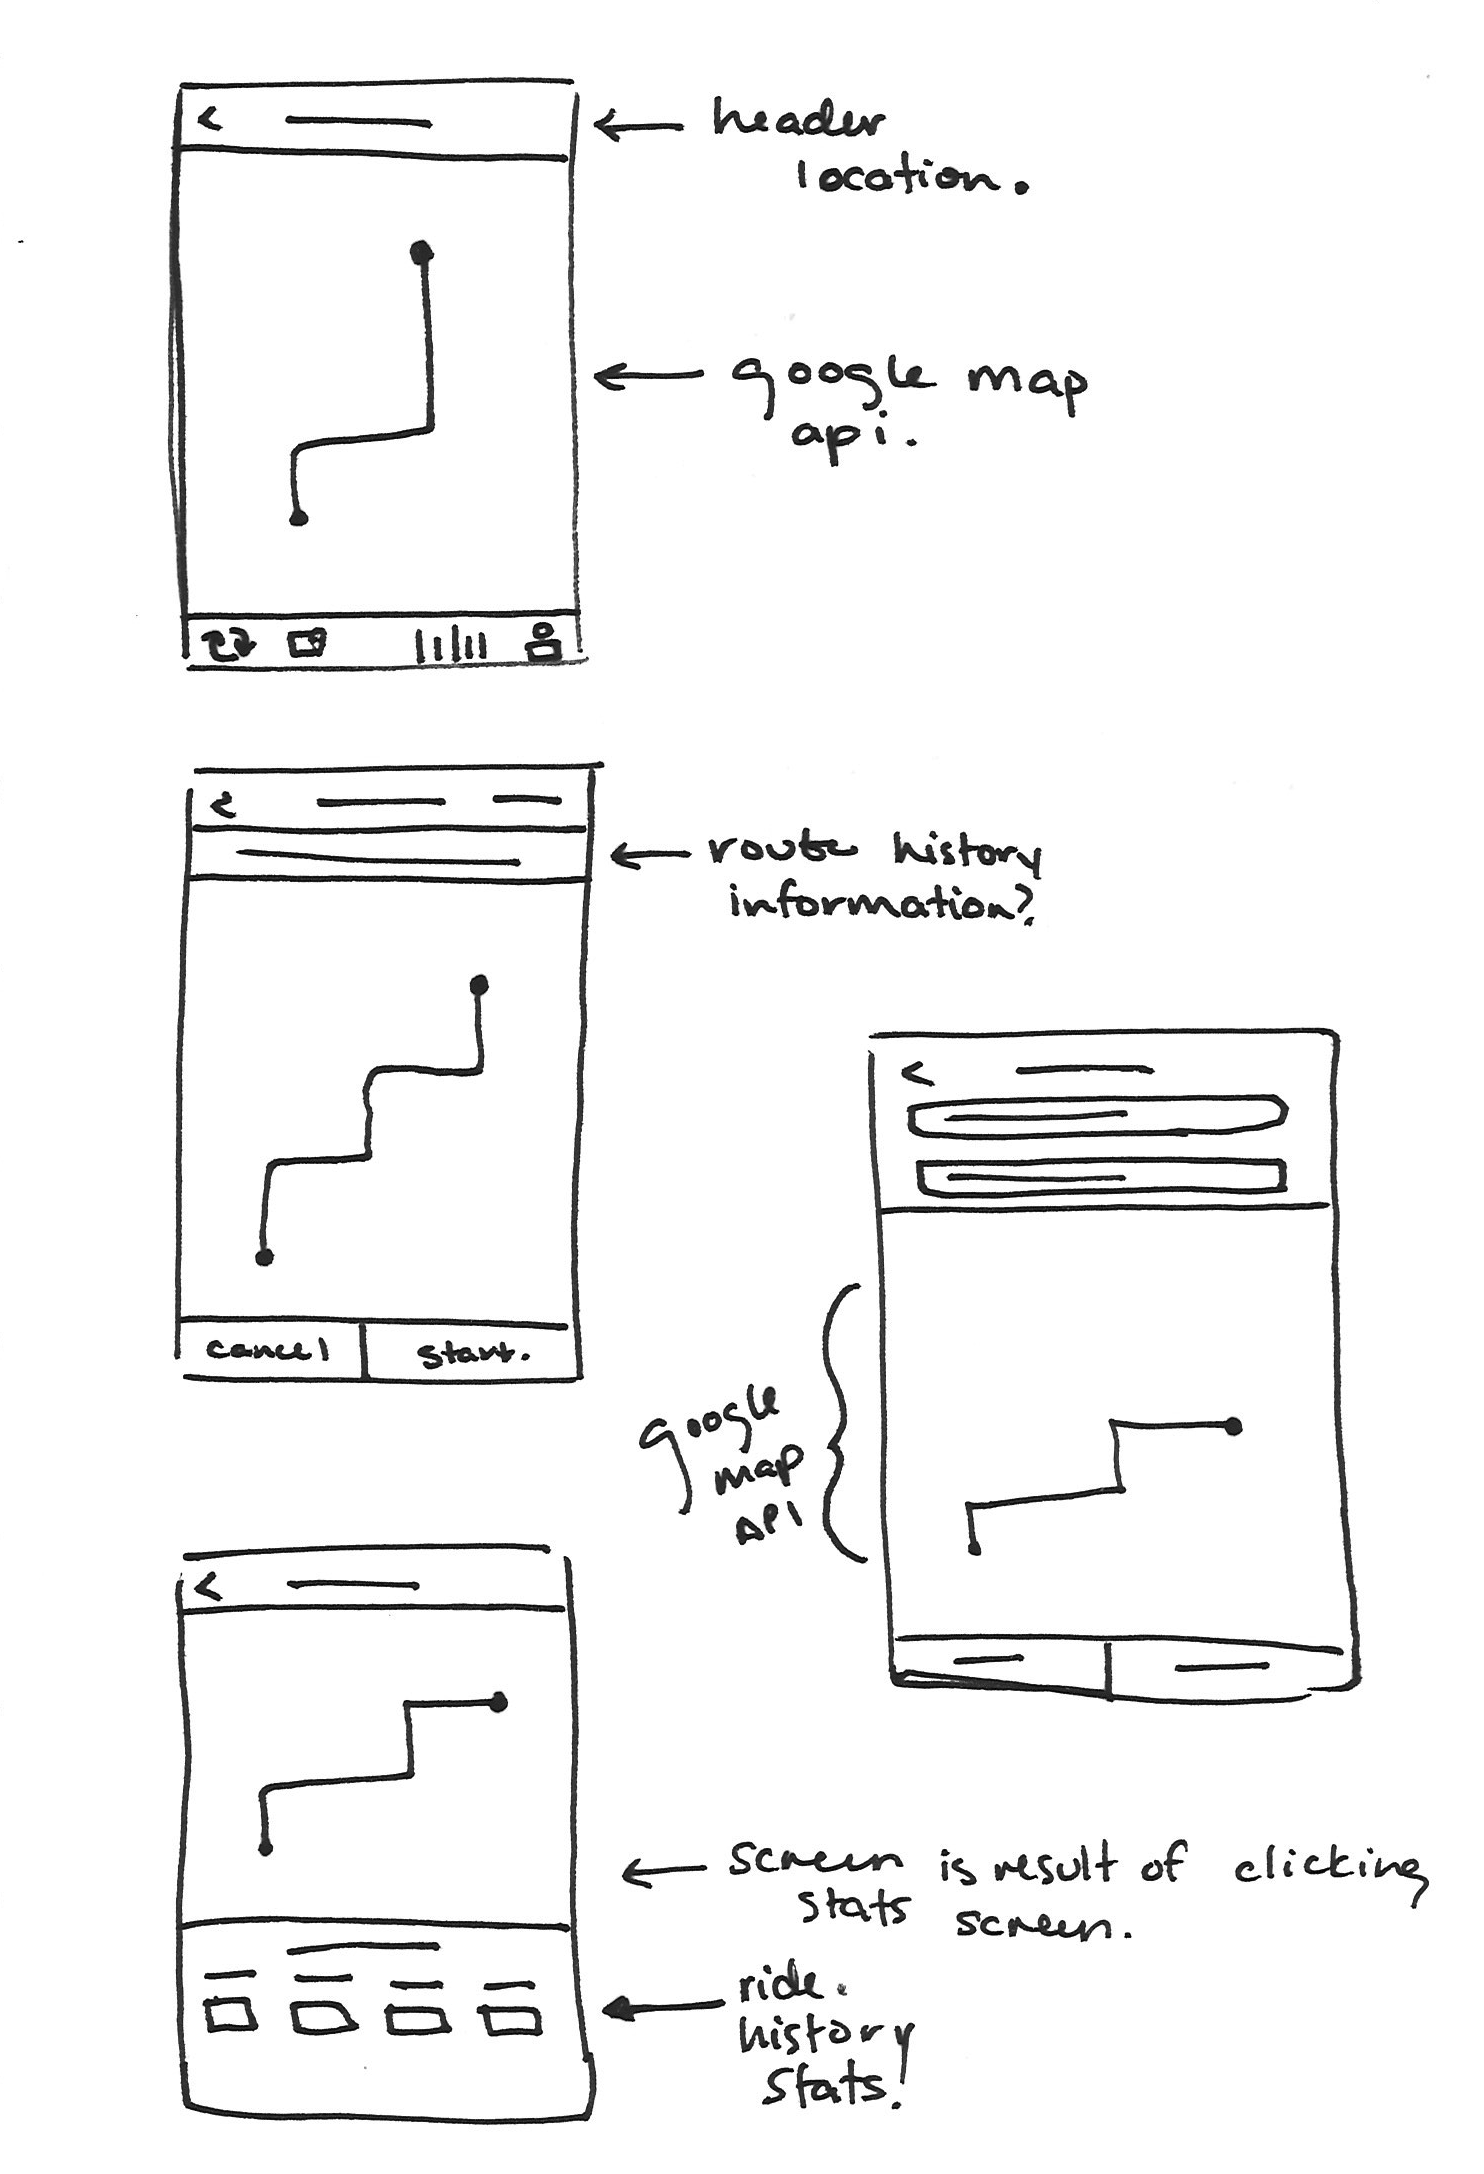 header
location.
google map
api.
route history
information?
cancel
start.
google
map
API
screen is result of clicking
stats screen.
ride.
history
stats!